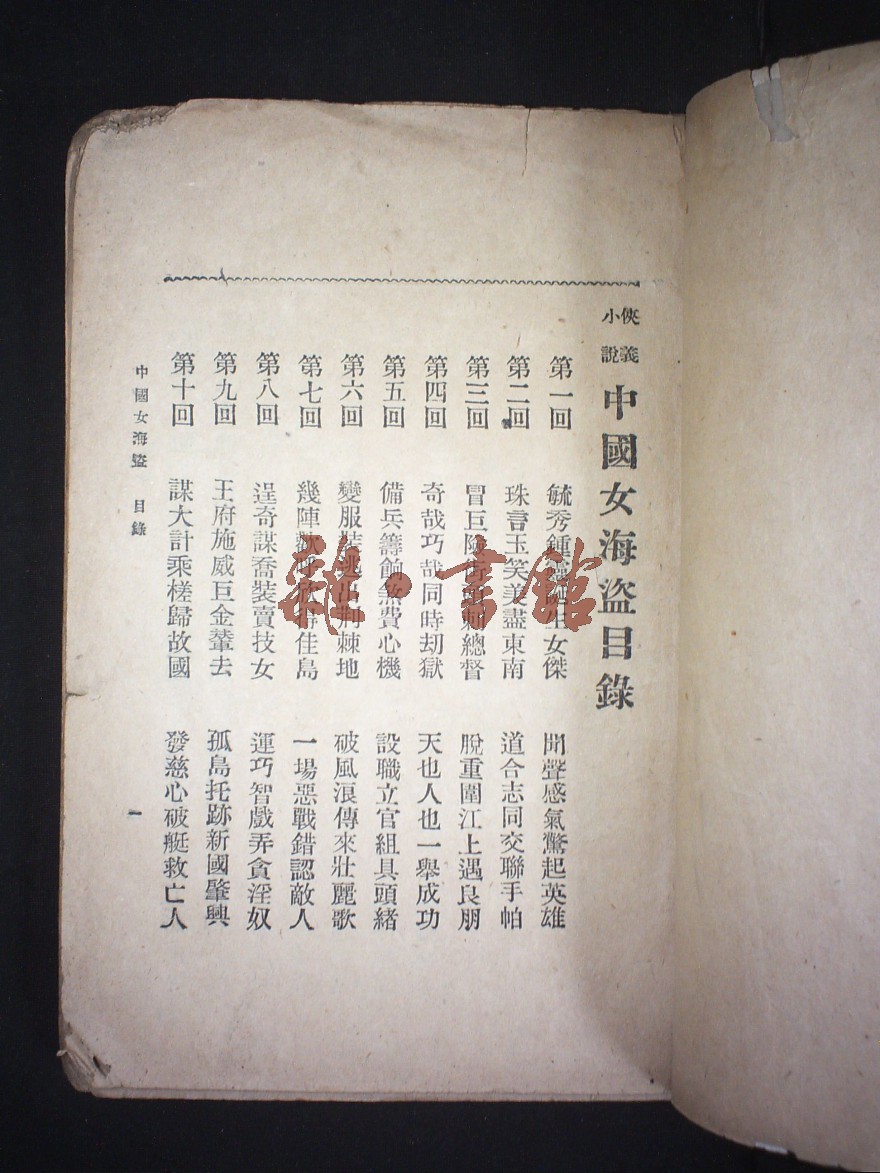 俠義小說
中國女海盜目錄
第一回 毓秀鍾靈 女傑 聞聲感氣驚起英雄
第二回 珠言玉笑美盡東南 道合志同交聯手帕
第三回 冒巨險 刺總督 脫重圍江上遇良朋
第四回 奇哉巧哉同時劫獄 天也人也一舉成功
第五回 備兵籌餉煞費心機 設職立官組具頭緒
第六回 變服裝逃出荆棘地 破風浪傳來壯麗歌
第七回 幾陣歡呼欣得佳島 一場惡戰錯認敵人
第八回 逞奇謀喬裝賣技女 運巧智戲弄貪淫奴
第九回 王府施威巨金輦去 孤島托跡新國肇興
第十回 謀大計乘槎歸故國 發慈心破艇救亡人
中國女海盜 目錄
一
雜·書館